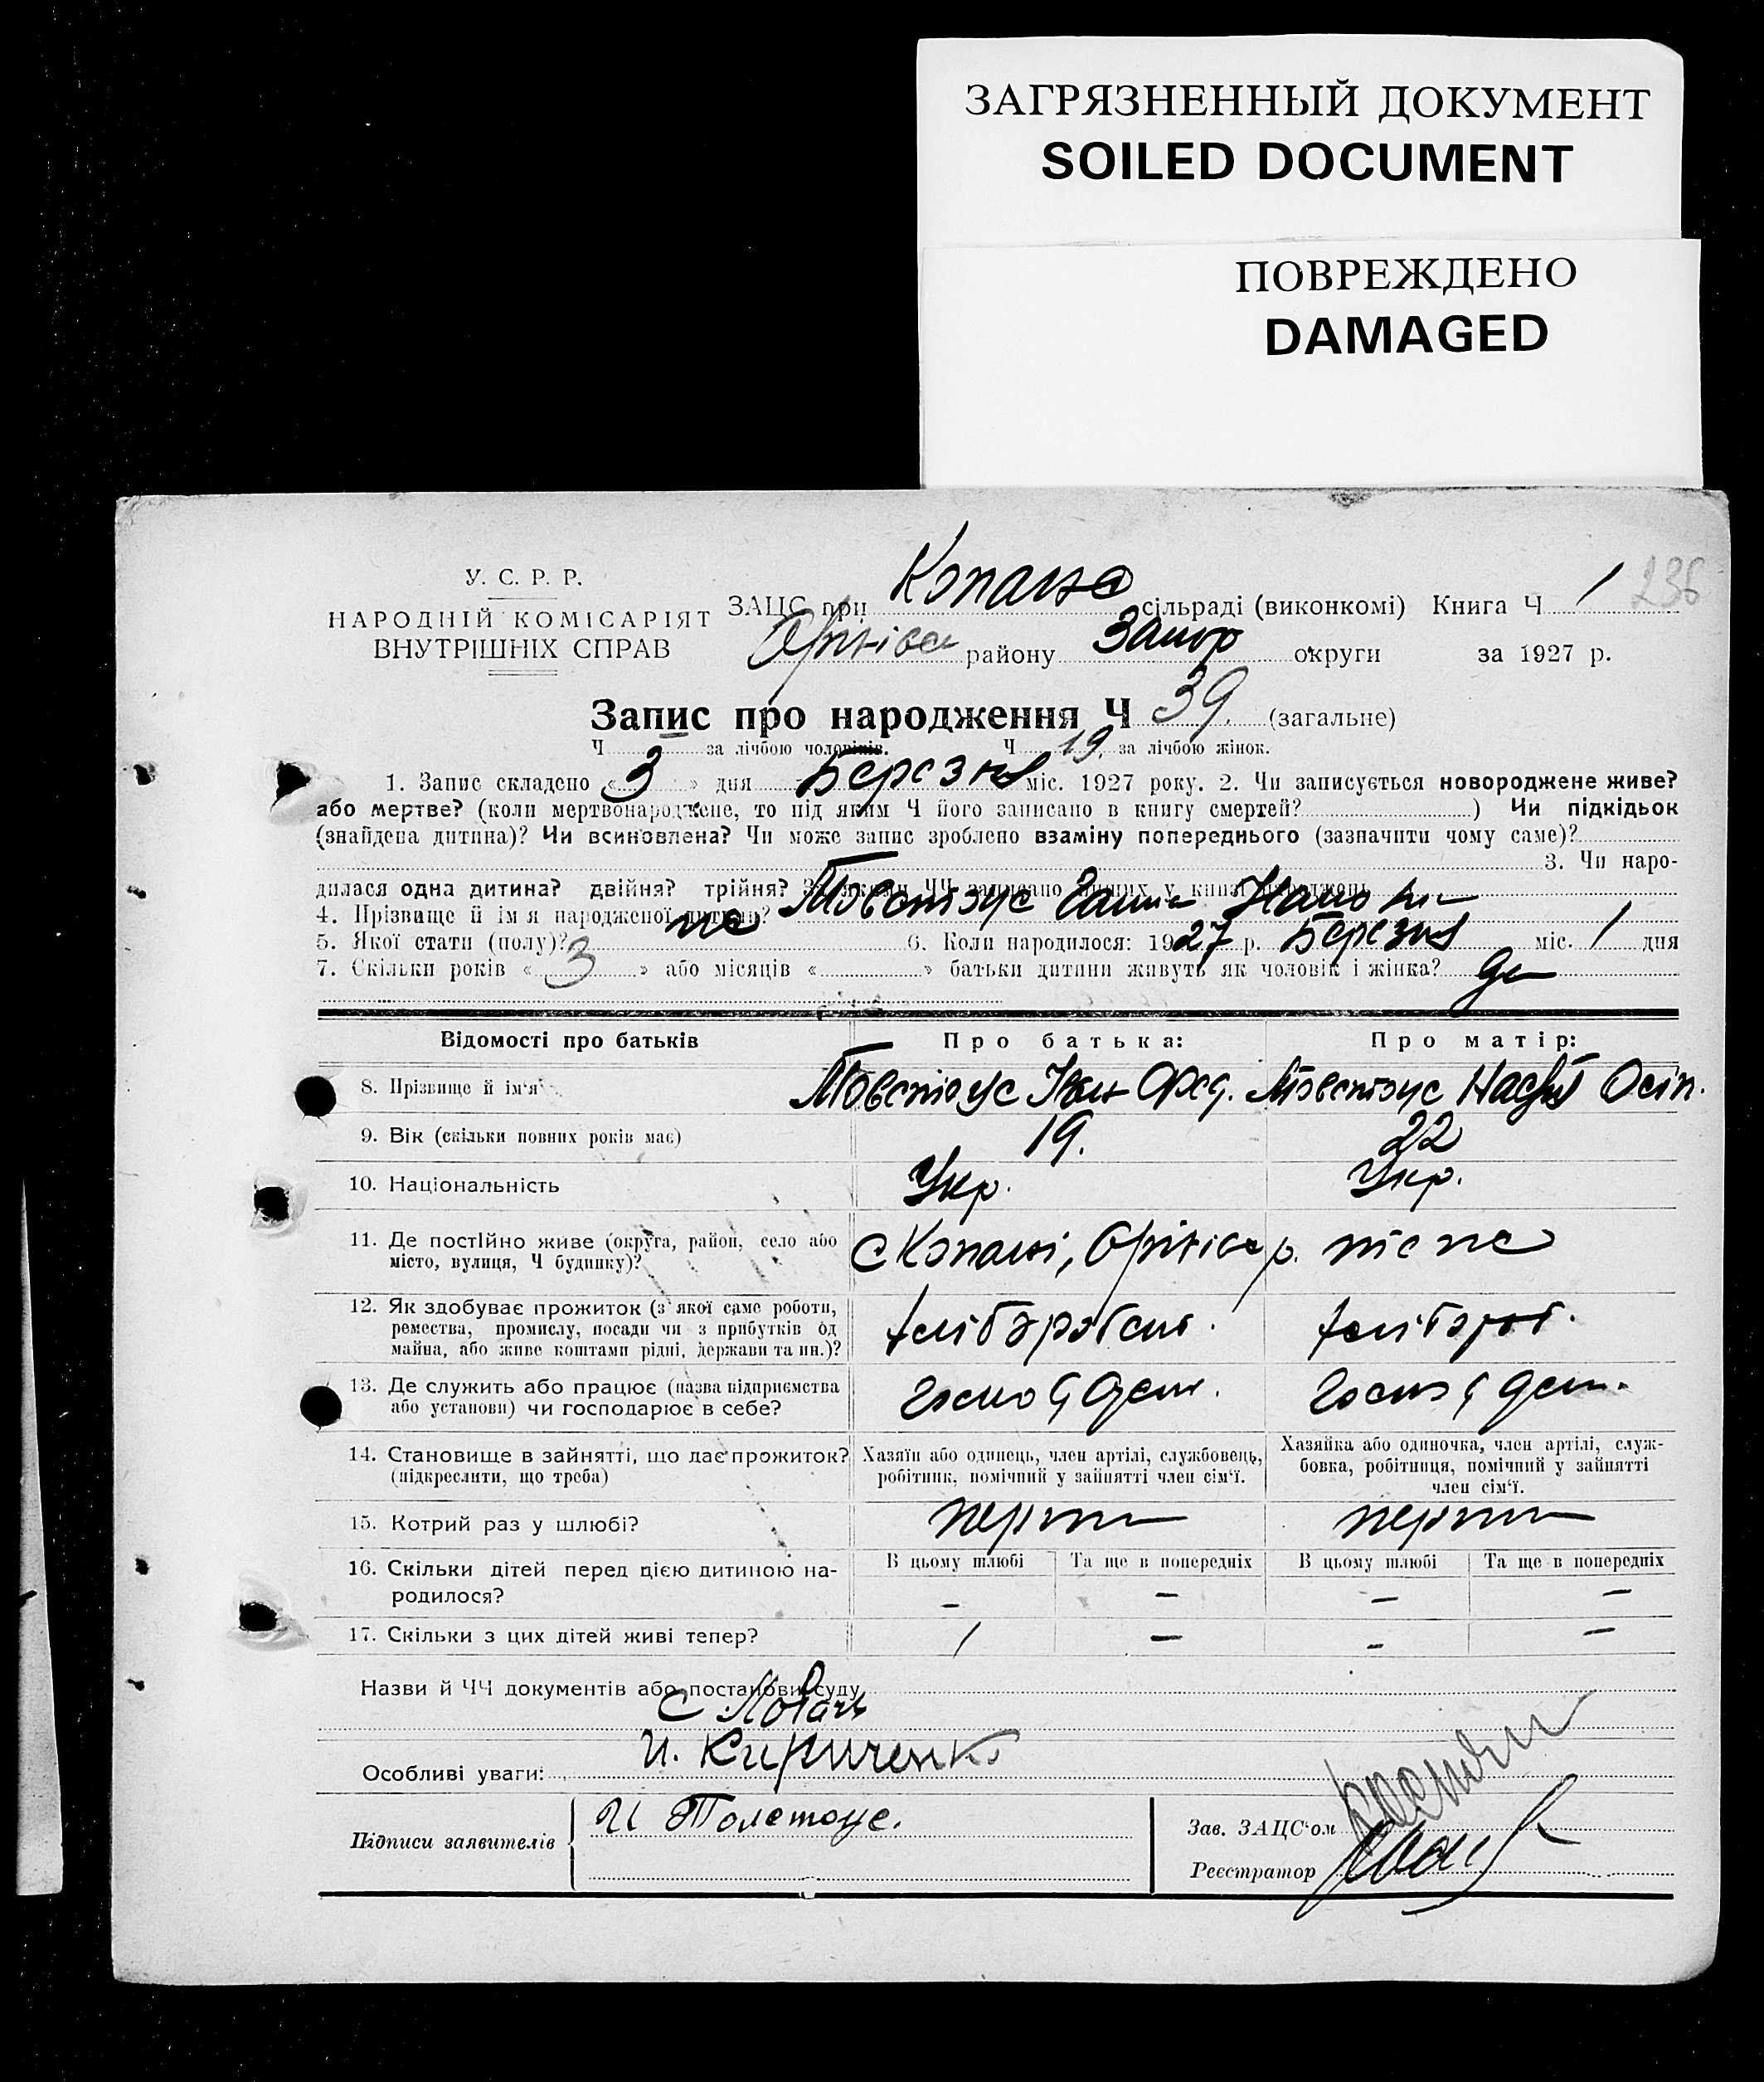 ЗАГРЯЗНЕННЫЙ ДОКУМЕНТ
SOILED DOCUMENT
ПОВРЕЖДЕНО
DAMAGED
236
У. С. Р. Р.
НАРОДНІЙ КОМІСАРІЯТ
ВНУТРІШНІХ СПРАВ
ЗАЦС при сільраді (виконкомі) Книга Ч 1
району Запор округи за 1927 р.
Запис про народження Ч 39. (загальне)
Ч за лічбою чоловіків. Ч 19. за лічбою жінок.
1. Запис складено « 3 » дня Березня міс. 1927 року. 2. Чи записується новороджене живе?
або мертве? (коли мертвонароджене, то під яким Ч його записано в книгу смертей? ) Чи підкідьок
(знайдена дитина)? Чи всиновлена? Чи може запис зроблено взаміну попереднього (зазначити чому саме)?
3. Чи наро-
дилася одна дитина? двійня? трійня? За якими ЧЧ записано інших у книзі народжень
4. Прізвище й ім'я народженої дитини? Товстоус Ганна
5. Якої стати (полу)? 6. Коли народилося: 1927 р. Березня міс. 1 дня
7. Скільки років « 3 » або місяців « » батьки дитини живуть як чоловік і жінка? да
Відомості про батьків Про батька: Про матір:
8. Прізвище й ім'я Товстоус Іван Фед. Товстоус Осіп.
9. Вік (скільки повних років має) 19. 22
10. Національність Укр. Укр.
11. Де постійно живе (округа, район, село або
місто, вулиця, Ч будинку)? С Копані, р.
12. Як здобуває прожиток (з якої саме роботи,
ремества, промислу, посади чи з прибутків од
майна, або живе коштами рідні, держави та ин.)?
13. Де служить або працює (назва підприємства
або установи) чи господарює в себе?
14. Становище в зайнятті, що дає прожиток?
(підкреслити, що треба)
Хазяїн або одинець, член артілі, службовець,
робітник, помічний у зайнятті член сім'ї.
Хазяйка або одиночка, член артілі, служ-
бовка, робітниця, помічний у зайнятті
член сім'ї.
15. Котрий раз у шлюбі?
16. Скільки дітей перед цією дитиною на-
родилося?
В цьому шлюбі Та ще в попередніх В цьому шлюбі Та ще в попередніх
- - - -
17. Скільки з цих дітей живі тепер? / - - -
Назви й ЧЧ документів або постанови суду
С Лобачь
И. Кириченко
Особливі уваги:
Підписи заявителів И Толстоус.
Зав. ЗАЦС'ом
Реєстратор